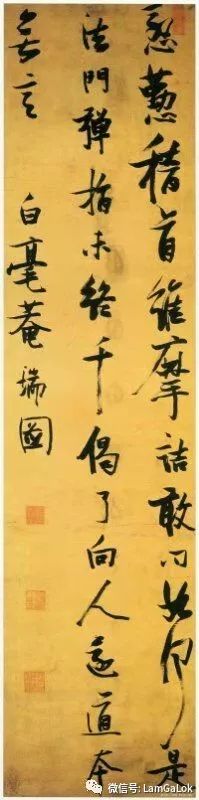 慇懃稽首維摩詰敢問如何是
法門彈指未終千偈了向人還道本
無言
白毫菴瑞圖
微信号: LamGaLok